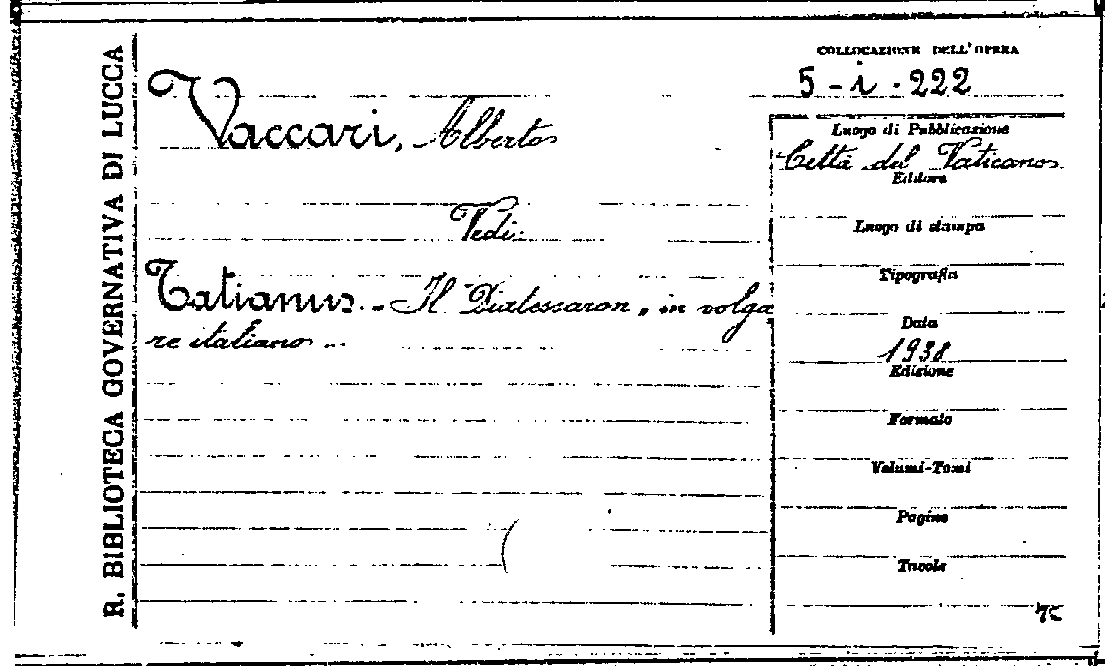 R. BIBLIOTECA GOVERNATIVA DI LUCCA
COLLOCAZIONE DELL'OPERA
5 - i - 222
Vaccari, Alberto
Vedi:
Tatianus. - Il Diatessaron, in volga
re italiano ...
Luogo di Pubblicazione
Città del Vaticano
Editore
Luogo di stampa
Tipografia
Data
1938
Edizione
Formato
Volumi-Tomi
Pagine
Tavole